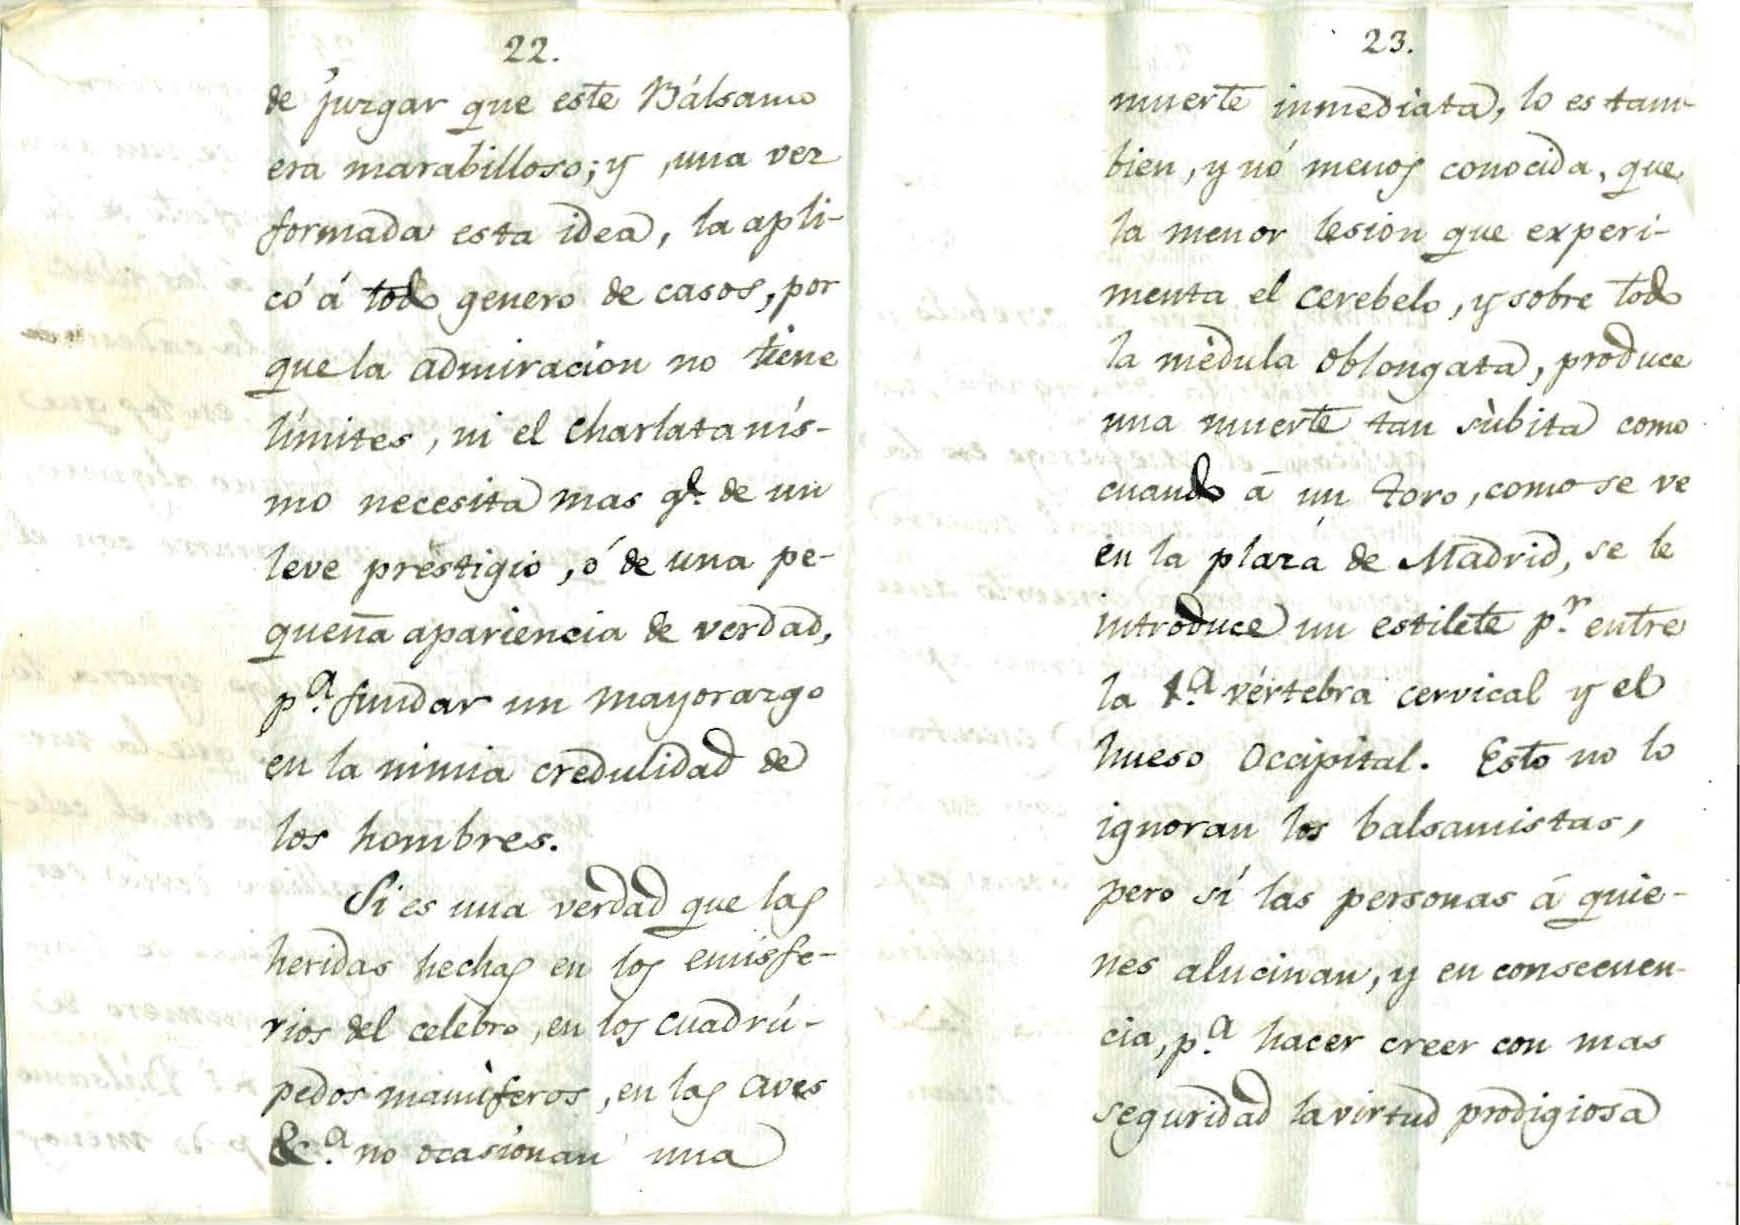 22.
de juzgar que este Bálsamo
era marabilloso; y, una vez
formada esta idea, la apli-
có á todo genero de casos, por
que la admiracion no tiene
límites, ni el charlatanís-
mo necesita mas q.e de un
leve prestigio, ó de una pe-
queña apariencia de verdad,
p.a fundar un mayorazgo
en la nimia credulidad de
los hombres.
Si es una verdad que las
heridas hechas en los emisfe-
rios del celebro, en los cuadrú-
pedos mamìferos, en las aves
&c.a no ocasionan una
23.
muerte inmediata, lo es tam-
bien, y nó menos conocida, que
la menor lesion que experi-
menta el cerebelo, y sobre todo
la mèdula oblongata, produce
una muerte tan sùbita como
cuando á un toro, como se ve
en la plaza de Madrid, se le
introduce un estilete p.r entre
la 1.a vértebra cervical y el
hueso occipital. Esto no lo
ignoran los balsamistas,
pero sí las personas á quie-
nes alucinan, y en consecuen-
cia, p.a hacer creer con mas
seguridad la virtud prodigiosa